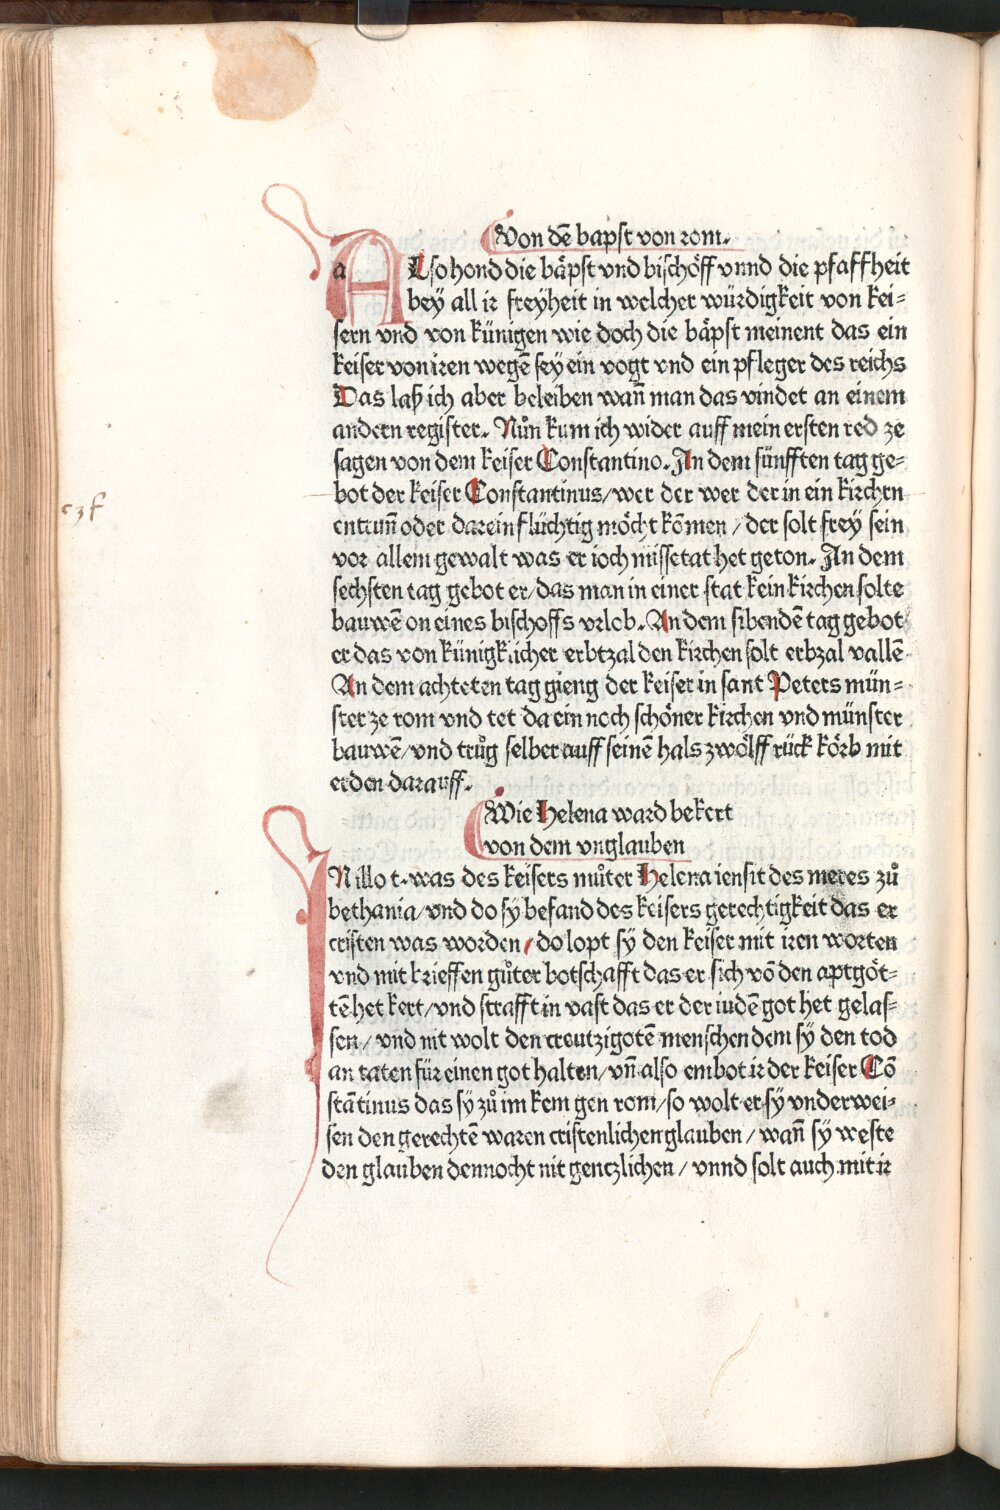 Von dē bapst von rom.
ALso hond die bäpst vnd bischöff vnnd die pfaffheit
bey all ir freyheit in welcher würdigkeit von kei-
sern vnd von künigen wie doch die bäpst meinent das ein
keiser von iren wegē sey ein vogt vnd ein pfleger des reichs
Das laß ich aber beleiben wañ man das vindet an einem
andern register. Nůn kum ich wider auff mein ersten red ze
sagen von dem keiser Constantino. In dem fünfften tag ge-
bot der keiser Constantinus/wer der wer der in ein kirchen
entrunn̄ oder darein flüchtig möcht kōmen/der solt frey sein
vor allem gewalt was er ioch missetat het geton. In dem
sechsten tag gebot er/das man in einer stat kein kirchen solte
bauwē on eines bischoffs vrlob. An dem sibendē tag gebot
er das von künigklicher erbtzal den kirchen solt erbzal vallē
An dem achteten tag gieng der keiser in sant Peters mün-
ster ze rom vnd tet da ein noch schöner kirchen vnd münster
bauwē/vnd trůg selber auff seinē hals zwölff rück körb mit
erden darauff.
Wie Helena ward bekert
von dem vnglauben
INillo t. was des keisers můter Helena iensit des meres zů
bethania/vnd do sy befand des keisers gerechtigkeit das er
cristen was worden/do lopt sy den keiser mit iren worten
vnd mit brieffen gůter botschafft das er sich vō den aptgöt-
tē het kert/vnd strafft in vast das er der iudē got het gelas-
sen/vnd nit wolt den creutzigotē menschen dem sy den tod
an taten für einen got halten/vñ also embot ir der keiser Cō
stātinus das sy zů im kem gen rom/so wolt er sy vnderwei-
sen den gerechtē waren cristenlichen glauben/wañ sy weste
den glauben dennocht nit gentzlichen/vnnd solt auch mit ir